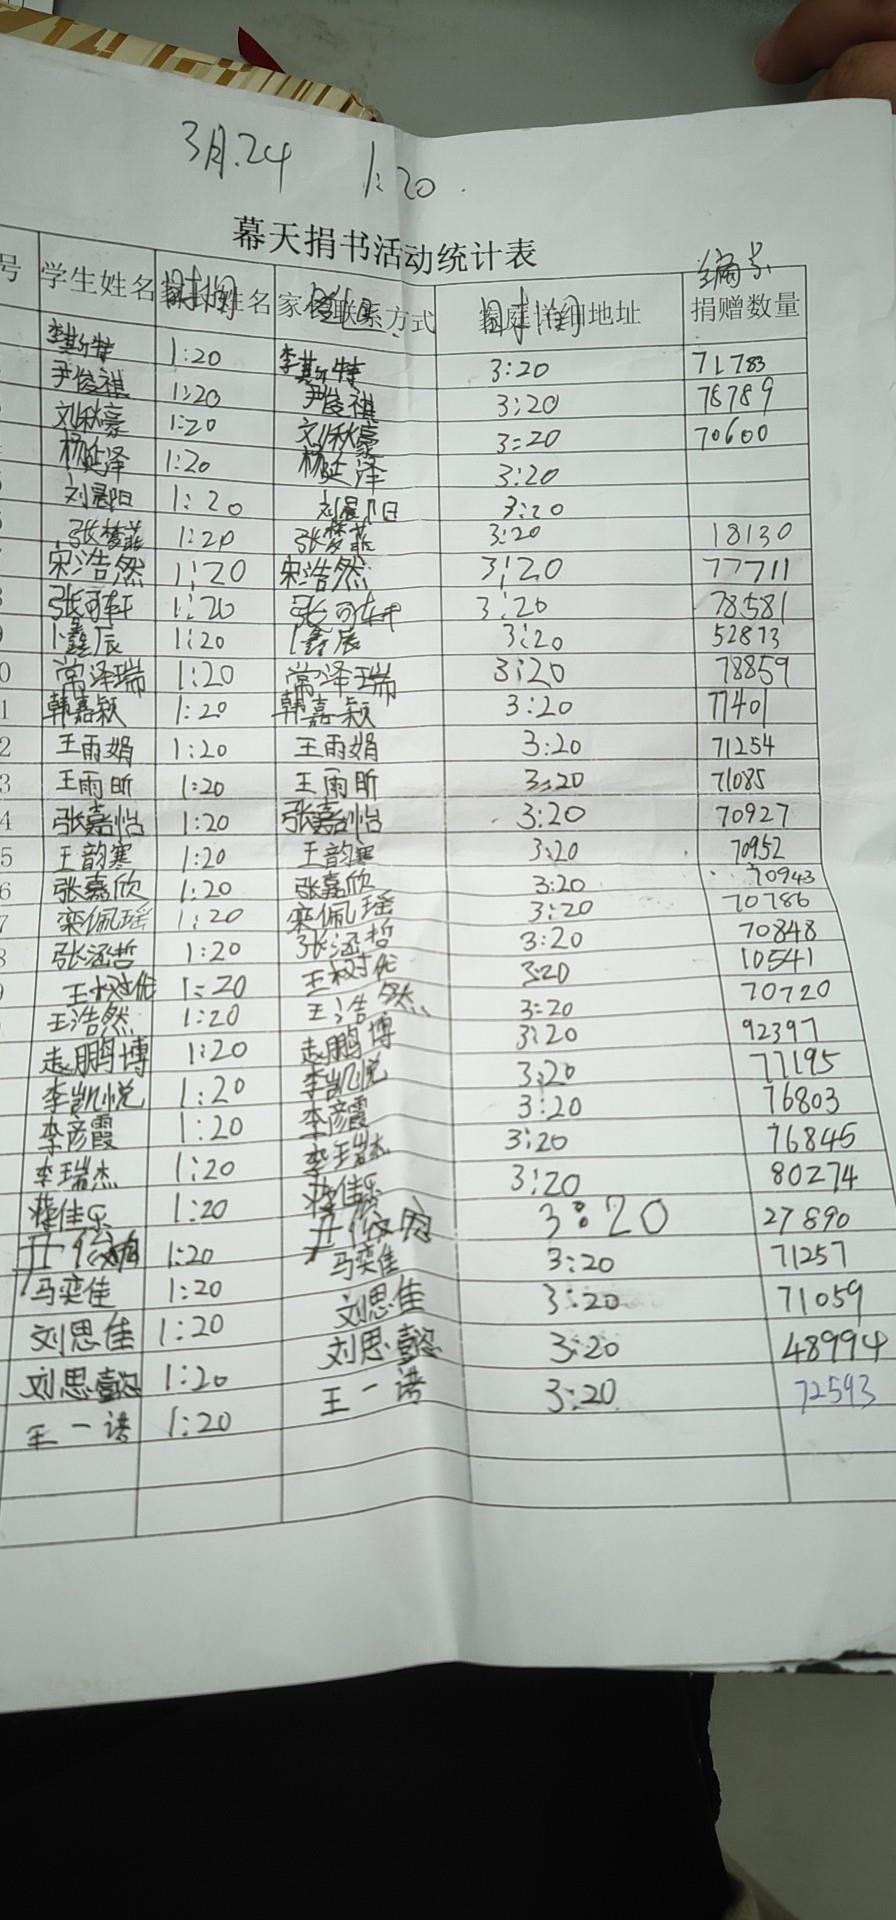 3月.24 1:20
幕天捐书活动统计表
编号
号 学生姓名 家长姓名 家长联系方式 家庭详细地址 捐赠数量
李斯特 1:20 李斯特 3:20 71783
尹俊祺 1:20 尹俊祺 3:20 78789
刘秋豪 1:20 刘秋豪 3:20 70600
杨延泽 1:20 杨延泽 3:20
刘晨阳 1:20 刘晨阳 3:20
张梦菲 1:20 张梦菲 3:20 18130
宋浩然 1:20 宋浩然 3:20 77711
张可轩 1:20 张可轩 3:20 78581
卜鑫辰 1:20 卜鑫辰 3:20 52873
0 常泽瑞 1:20 常泽瑞 3:20 78859
1 韩嘉颖 1:20 韩嘉颖 3:20 77401
2 王雨娟 1:20 王雨娟 3:20 71254
3 王雨昕 1:20 王雨昕 3:20 71085
4 张嘉怡 1:20 张嘉怡 3:20 70927
5 王韵寒 1:20 王韵寒 3:20 70952
6 张嘉欣 1:20 张嘉欣 3:20 70943
7 栾佩瑶 1:20 栾佩瑶 3:20 70786
8 张涵哲 1:20 张涵哲 3:20 70848
9 王树佗 1:20 王树佗 3:20 10541
王浩然 1:20 王浩然 3:20 70720
赵鹏博 1:20 赵鹏博 3:20 92397
李凯悦 1:20 李凯悦 3:20 77195
李彦霞 1:20 李彦霞 3:20 76803
李瑞杰 1:20 李瑞杰 3:20 76845
佳乐 1:20 佳乐 3:20 80274
1:20 3:20 27890
马奕佳 1:20 马奕佳 3:20 71257
刘思佳 1:20 刘思佳 3:20 71059
刘思懿 1:20 刘思懿 3:20 48994
王一诺 1:20 王一诺 3:20 72593